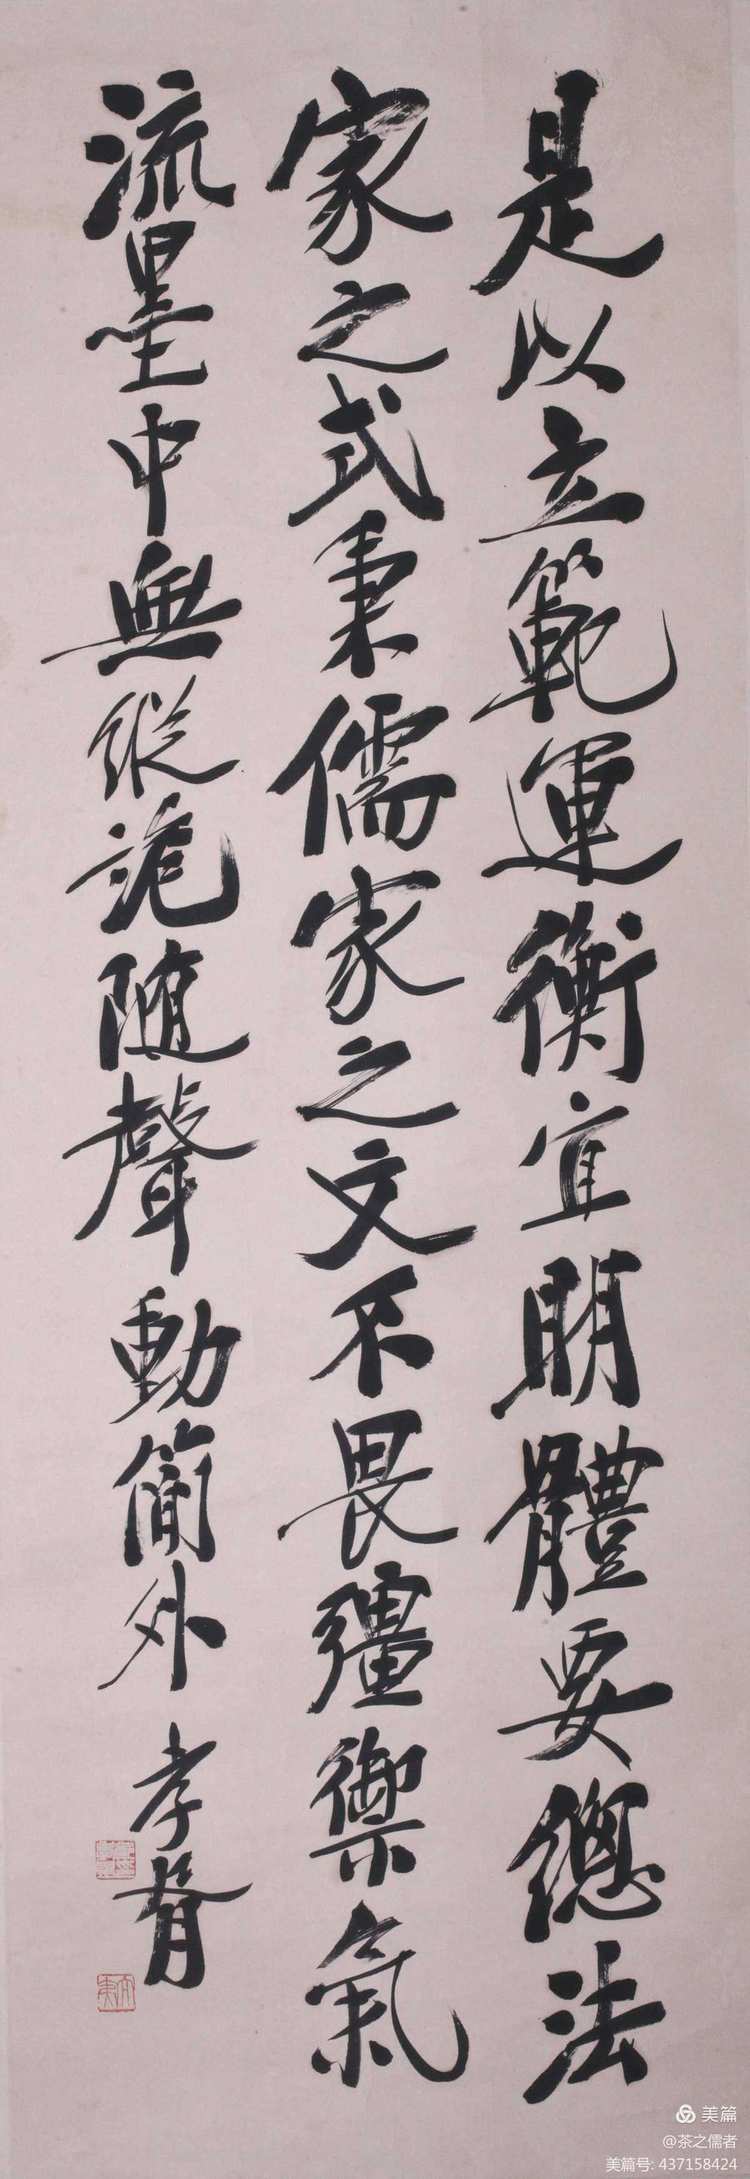 是以立範運衡宜明體要總法
家之式秉儒家之文不畏彊禦氣
流墨中無縱詭随聲動簡外
孝胥
美篇
@茶之儒者
美篇号: 437158424